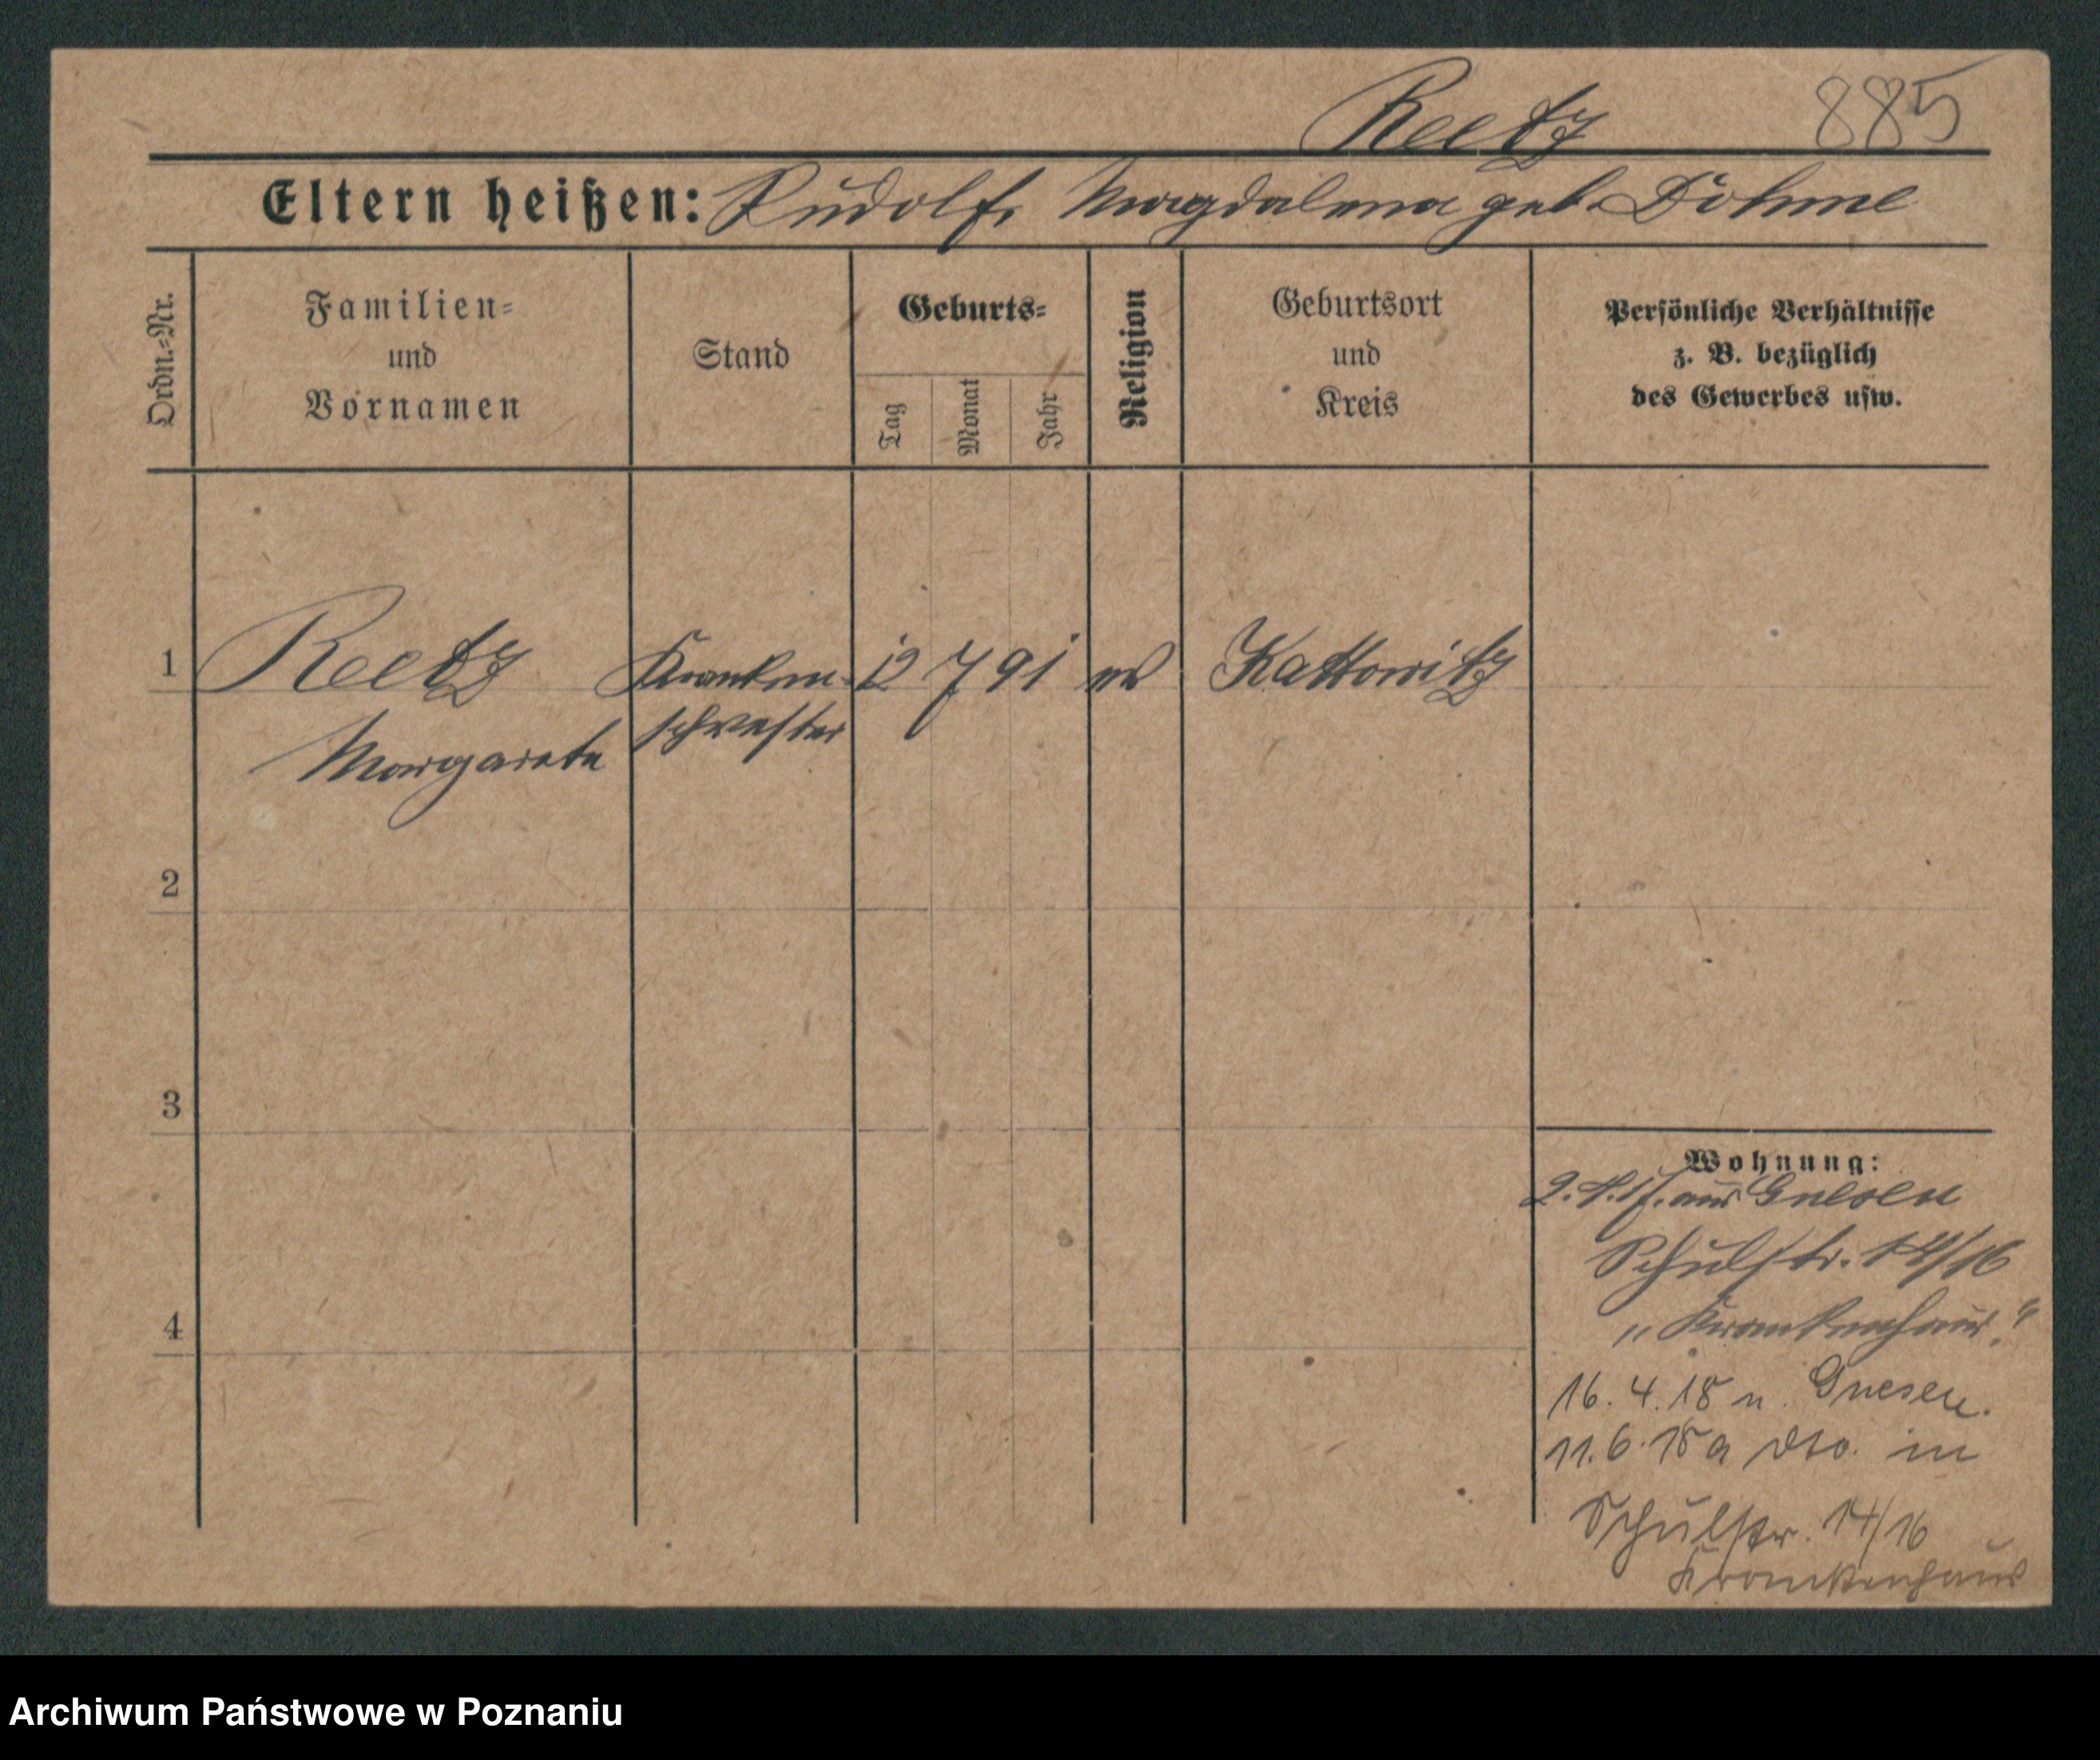 Reetz 885
Eltern heißen: Rudolf, Magdalena geb. Döhme
Ordn.=Nr.
Familien=
und
Vornamen
Stand
Geburts=
Tag
Monat
Jahr
Religion
Geburtsort
und
Kreis
Persönliche Verhältnisse
z. B. bezüglich
des Gewerbes usw.
1 Reetz Kranken- 12 7 91 ev Kattowitz
Margarete schwester
2
3
4
Wohnung:
aus Gnesen
Schulstr. 14/16
„Krankenhaus."
16. 4. 18 n. Gnesen.
11. 6. 18 a dto. in
Schulstr. 14/16
Krankenhaus
Archiwum Państwowe w Poznaniu